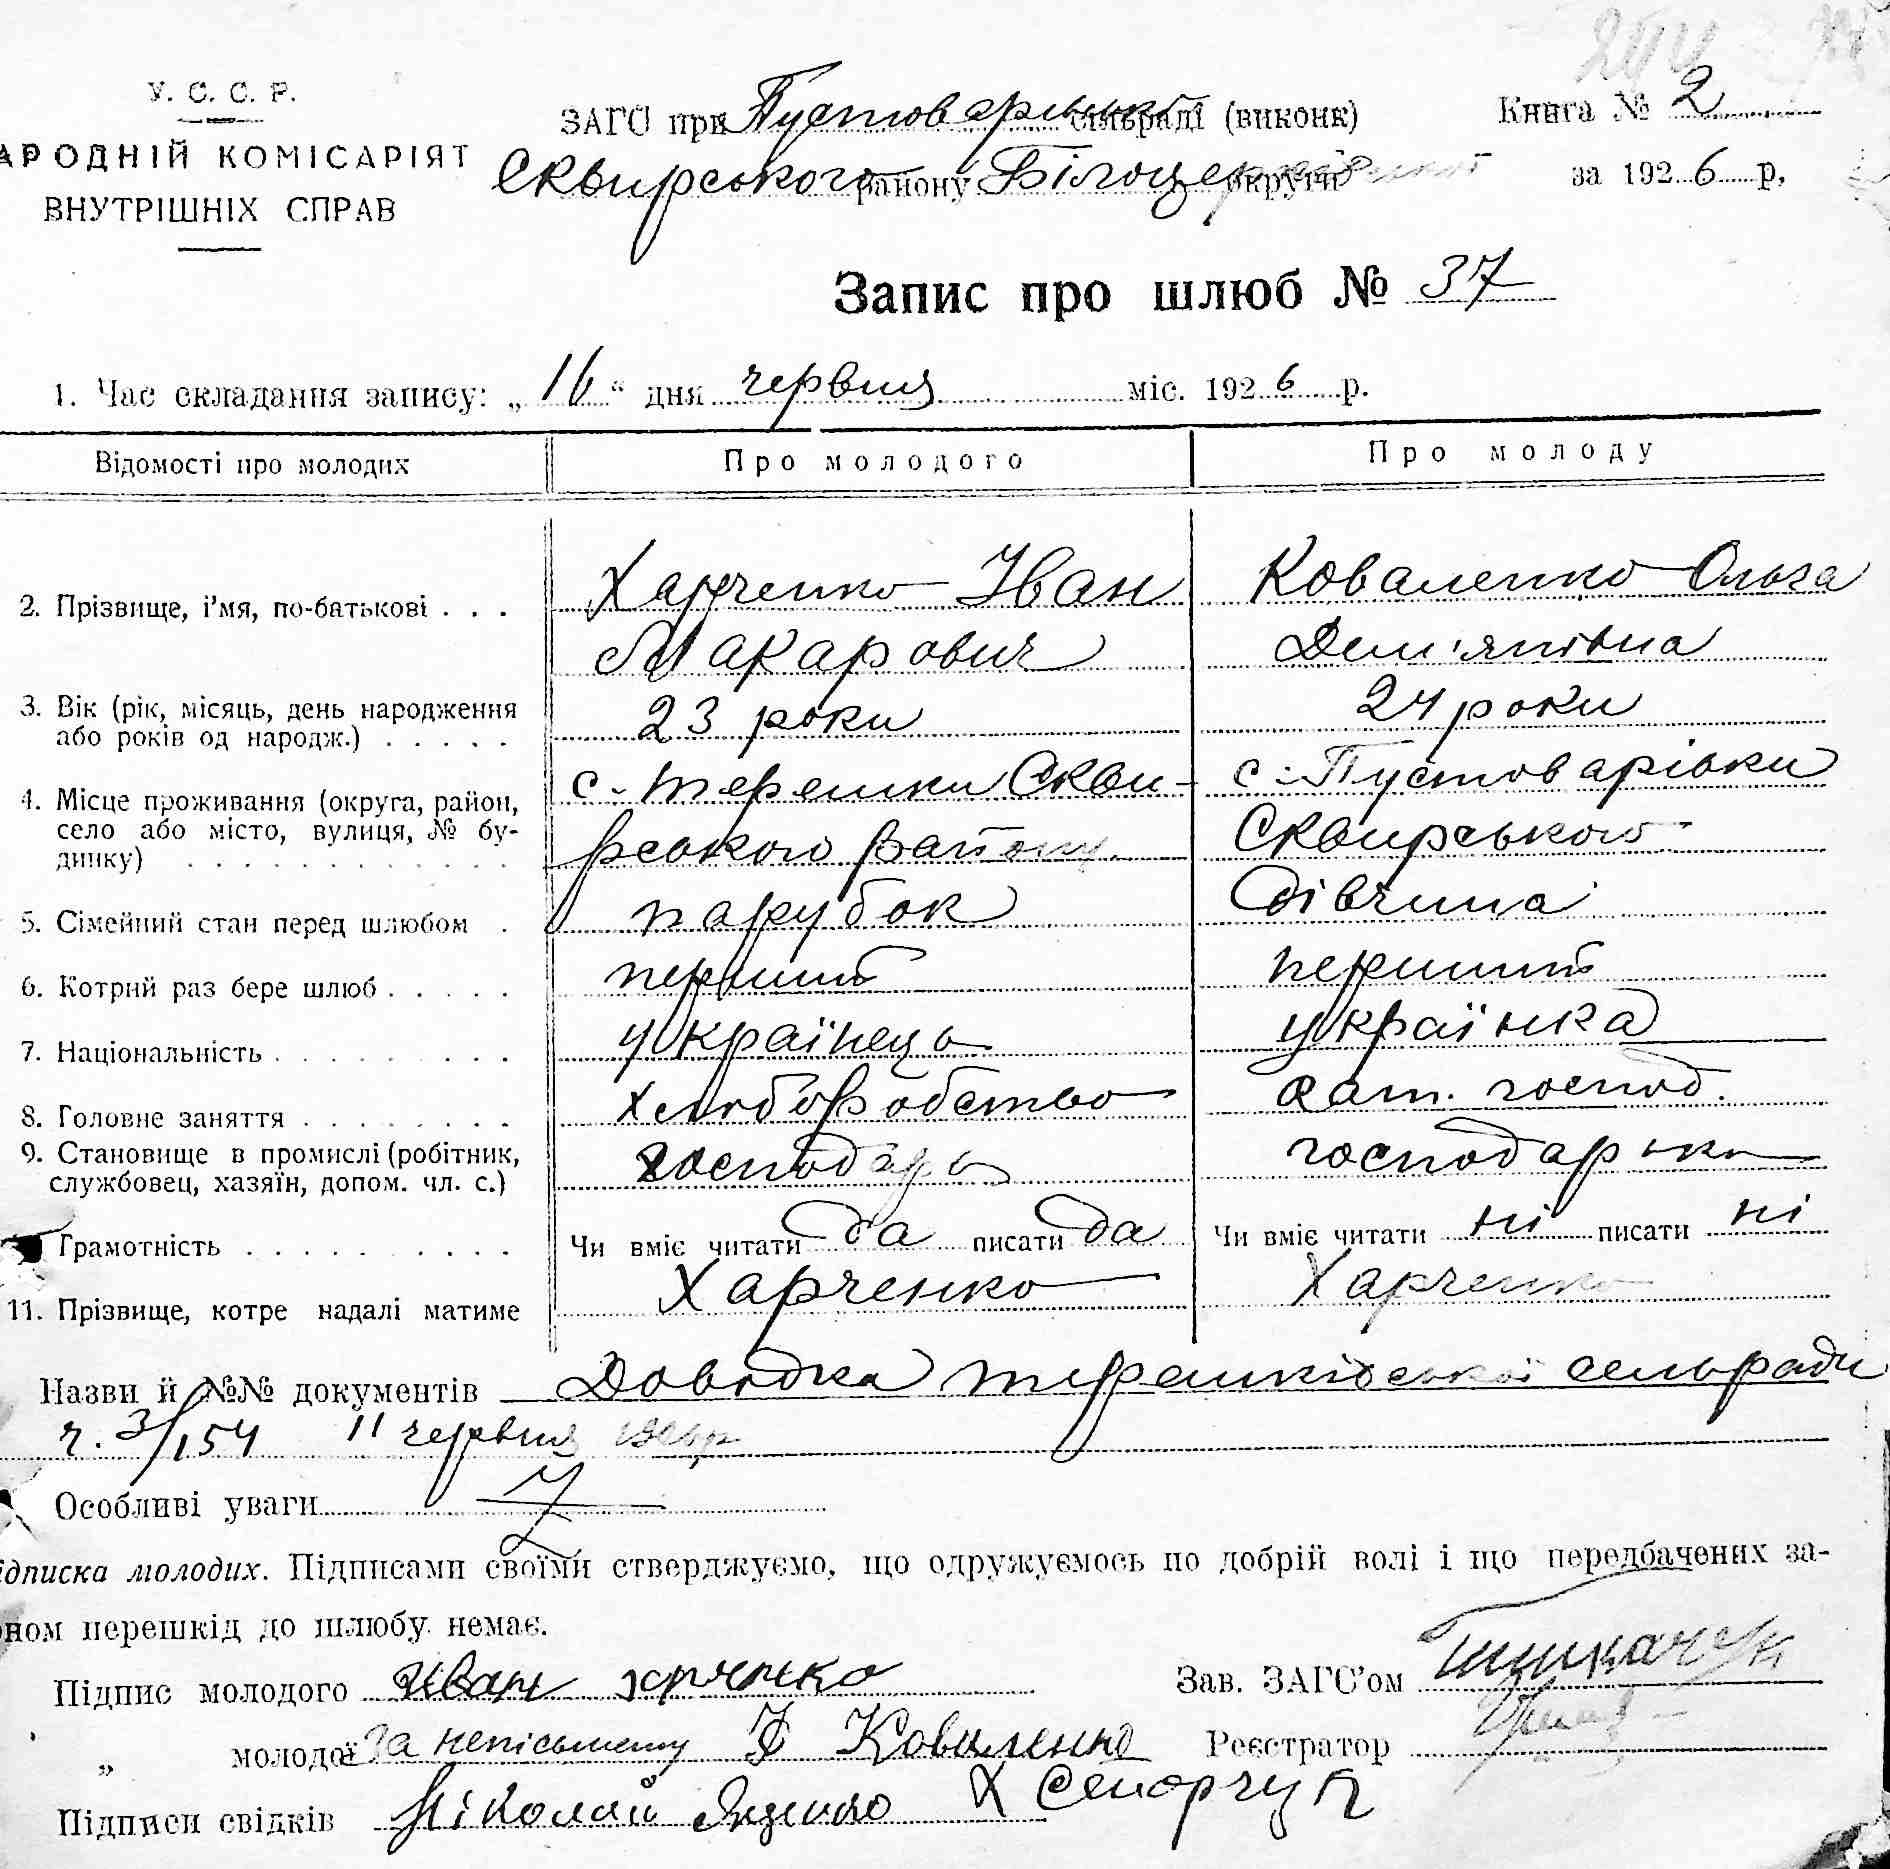 У. С. С. Р.
АРОДНІЙ КОМІСАРІЯТ
ВНУТРІШНІХ СПРАВ
ЗАГС при Пустоварській сільраді (виконк)
Сквирського району Білоцерківської округи
Книга № 2
за 1926 р,
Запис про шлюб № 37
1. Час складання запису: „16“ дня червня міс. 1926 р.
Відомості про молодих Про молодого Про молоду
2. Прізвище, і'мя, по-батькові . . . Харченко Іван Коваленко Ольга
Макарович Дем'янівна
3. Вік (рік, місяць, день народження
або років од народж.) . . . . . 23 роки 24 роки
4. Місце проживання (округа, район,
село або місто, вулиця, № бу-
динку) . . . . . . . . . . . .
с. Терешки Скви- с. Пустоварівки
рського району Сквирського
5. Сімейний стан перед шлюбом . парубок дівчина
6. Котрий раз бере шлюб . . . . . перший перший
7. Національність . . . . . . . . . українець українка
8. Головне заняття . . . . . . . . хлюборобство хат. господ.
9. Становище в промислі (робітник,
службовец, хазяїн, допом. чл. с.) господарь господарька
Грамотність . . . . . . . . . . Чи вміє читати да писати да Чи вміє читати ні писати ні
11. Прізвище, котре надалі матиме Харченко Харченко
Назви й №№ документів Довідка терешківської сельради
ч. 3/154 11 червня
Особливі уваги
ідписка молодих. Підписами своїми стверджуємо, що одружуємось по добрій волі і що передбачених за-
оном перешкід до шлюбу немає.
Підпис молодого Иван хрчнко Зав. ЗАГС'ом
„ молодої за непісьмену Коваленко Реєстратор
Підписи свідків Ніколай Яценко Х